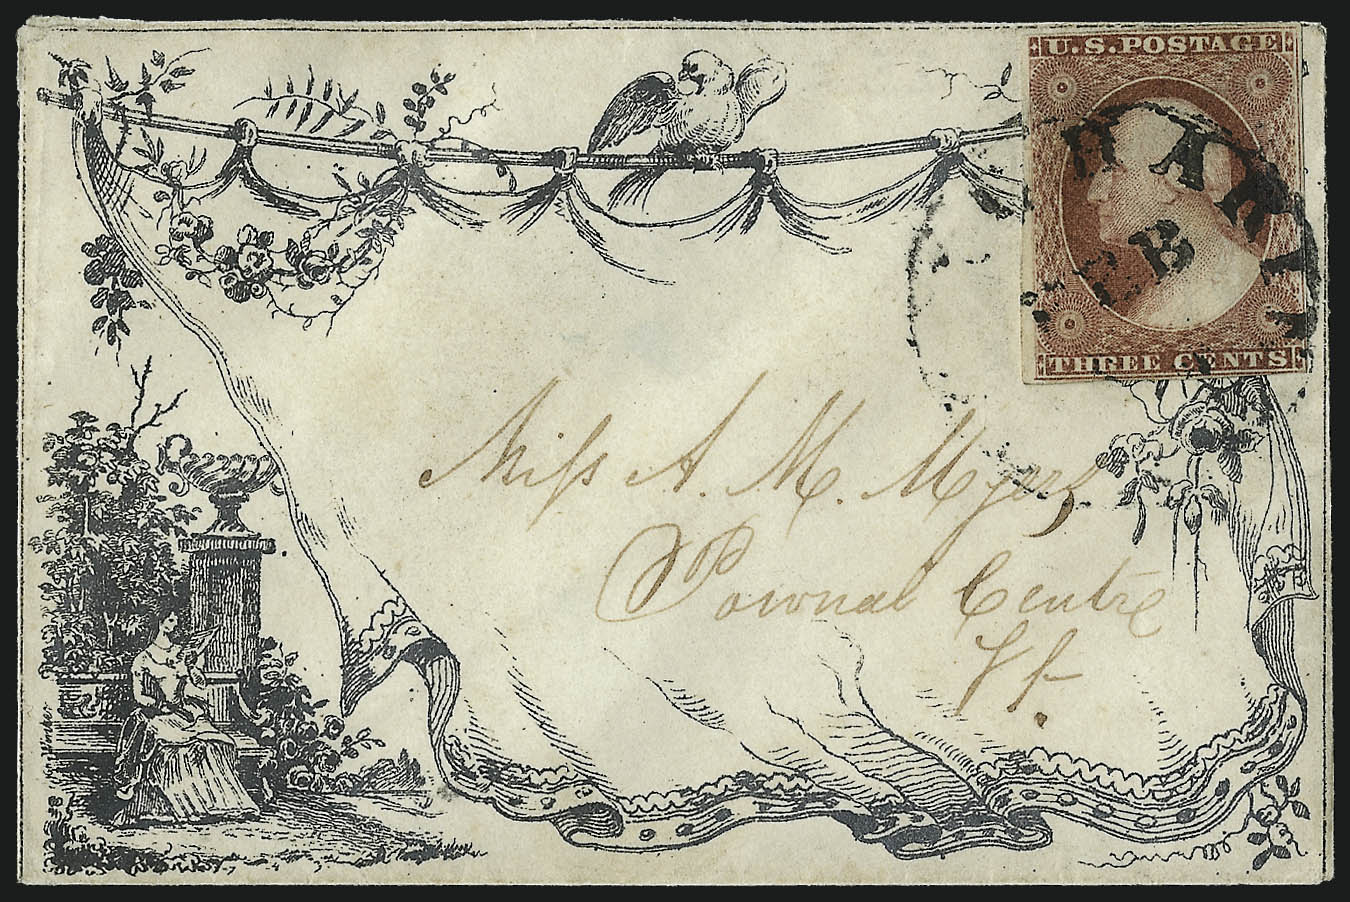 U.S. POSTAGE
THREE CENTS
FEB
Miss A. M. Myers
Pownal Centre
Vt.